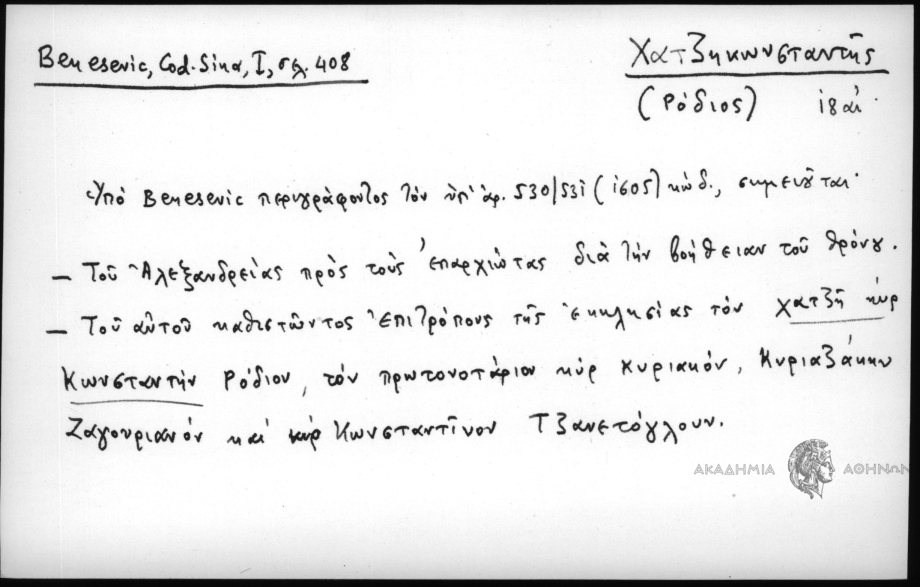 Benesevic, Cod. Sina, I, σελ. 408
Χατζηκωνσταντῆς
(Ρόδιος) ιθαί
Ὑπό Benesevic περιγράφοντος τόν ὑπ' ἀρ. 530/531 (1605) κώδ., σημειοῦται·
— Τοῦ Ἀλεξανδρείας πρός τούς ἐπαρχιώτας διά τήν βοήθειαν τοῦ θρόνου.
— Τοῦ αὐτοῦ καθιστῶντος ἐπιτρόπους τῆς ἐκκλησίας τόν χατζῆ κύρ
Κωνσταντήν Ρόδιον, τόν πρωτονοτάριον κύρ Κυριακόν, Κυριαζάκην
Ζαγουριανόν καί κύρ Κωνσταντῖνον Τζανετόγλουν.
ΑΚΑΔΗΜΙΑ ΑΘΗΝΩΝ